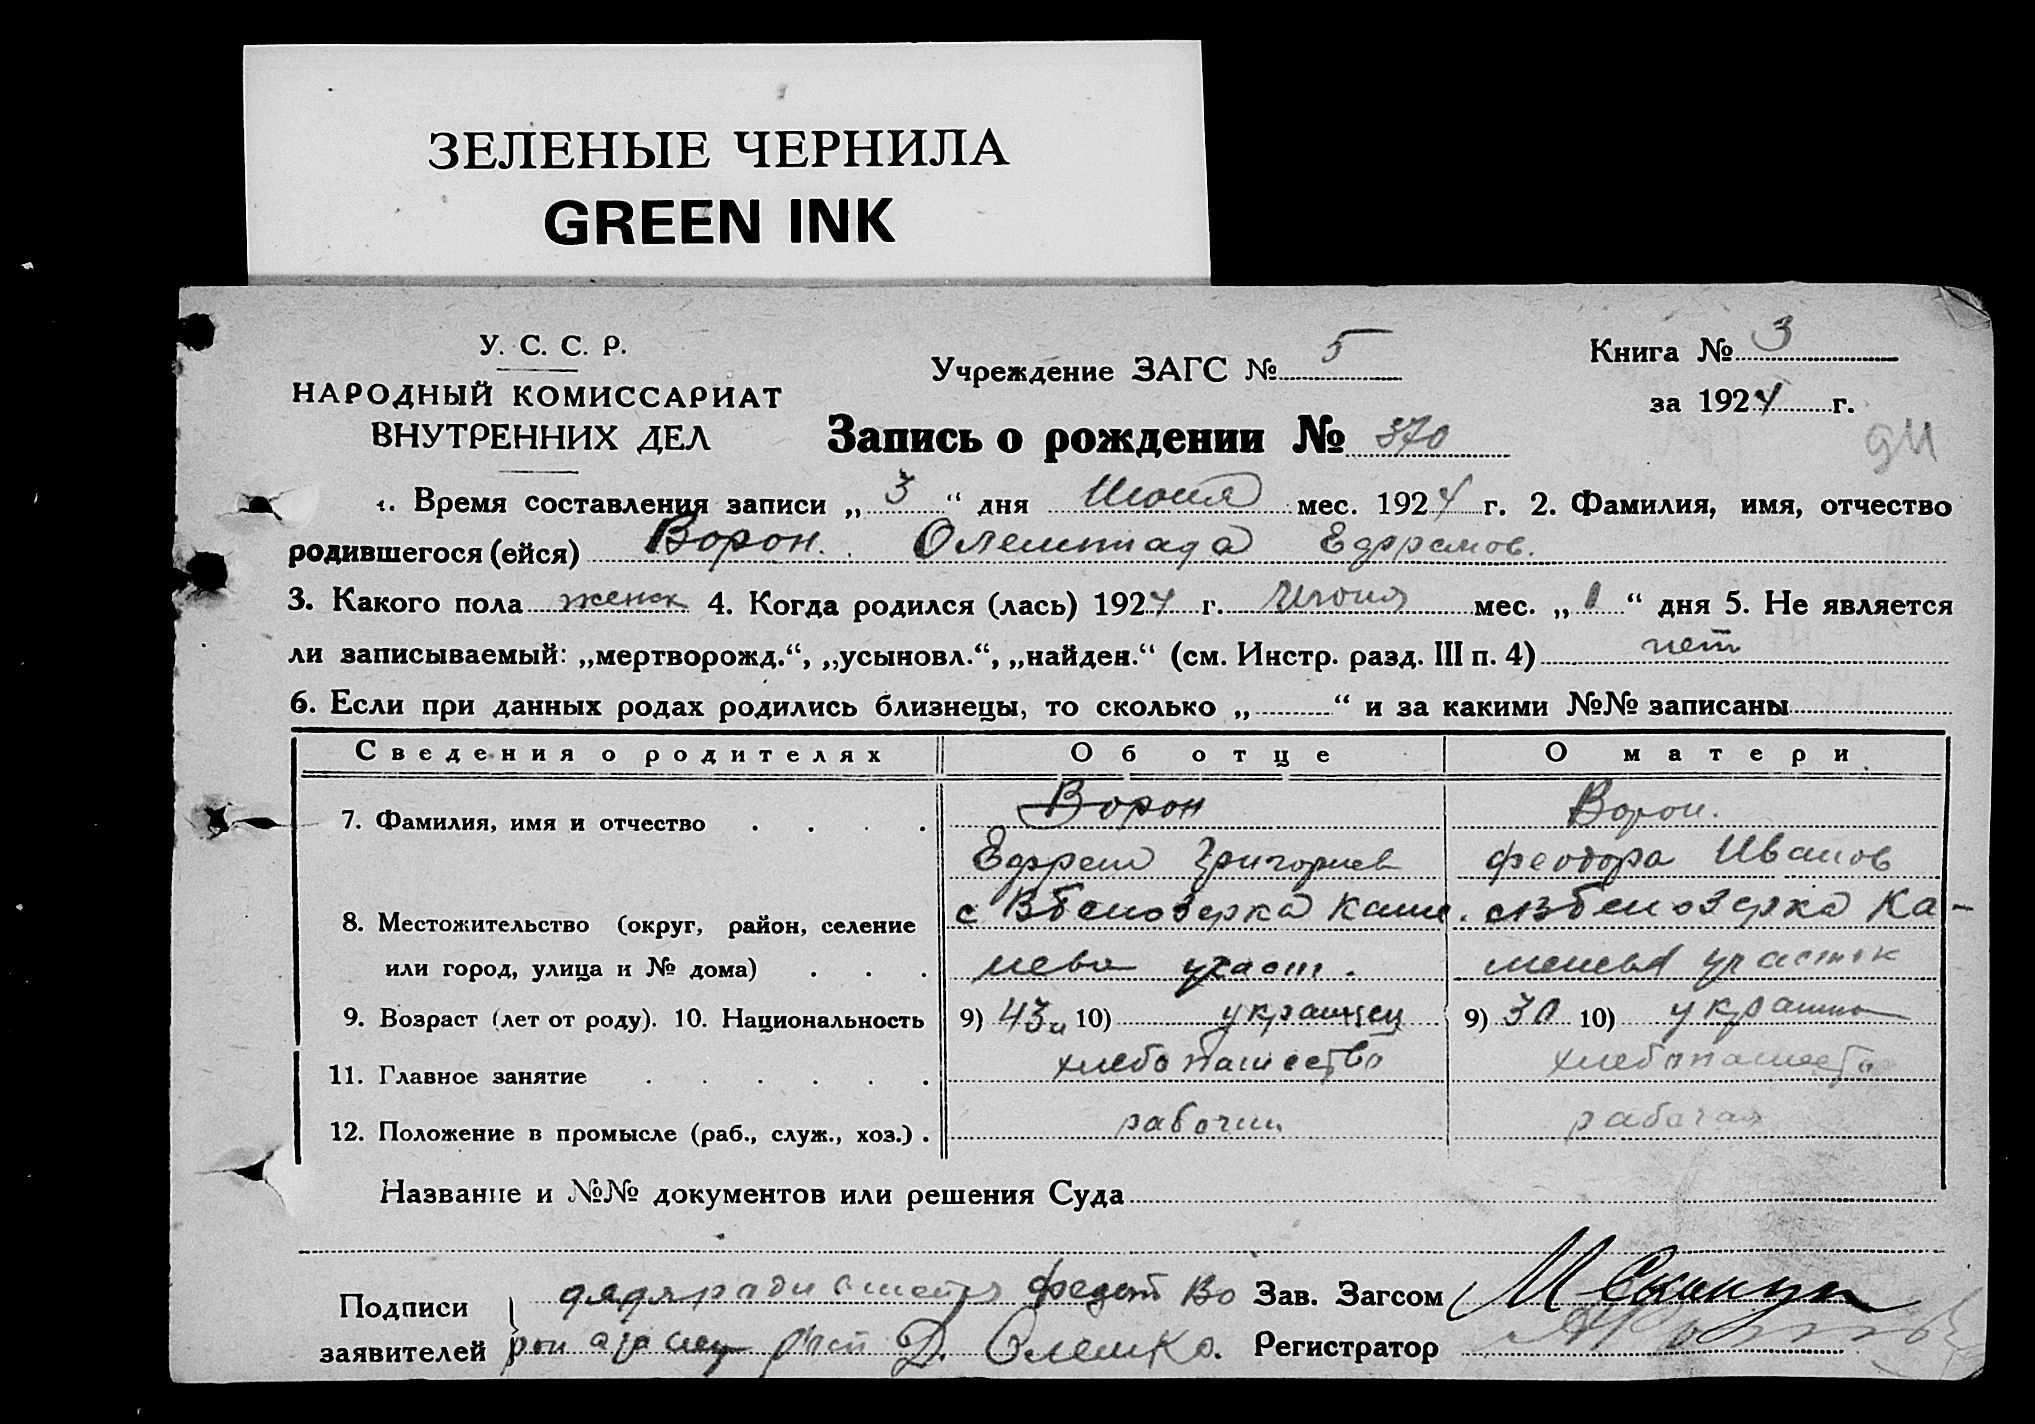 ЗЕЛЕНЫЕ ЧЕРНИЛА
GREEN INK
У. С. С. Р.
НАРОДНЫЙ КОМИССАРИАТ
ВНУТРЕННИХ ДЕЛ
Учреждение ЗАГС № 5
Книга № 3
за 1924 г.
Запись о рождении № 370
1. Время составления записи „ 3 “ дня Июня мес. 1924 г. 2. Фамилия, имя, отчество
родившегося (ейся) Ворон. Олемпиада Ефремов.
3. Какого пола женск 4. Когда родился (лась) 1924 г. Июня мес. „ 1 “ дня 5. Не является
ли записываемый: „мертворожд.“, „усыновл.“, „найден.“ (см. Инстр. разд. III п. 4) нет
6. Если при данных родах родились близнецы, то сколько „ “ и за какими №№ записаны
Сведения о родителях Об отце О матери
7. Фамилия, имя и отчество . . . . Ворон Ворон.
Ефрем Григориев Феодора Иванов
8. Местожительство (округ, район, селение с Вбелозерка Каме. с Вбелозерка Ка-
или город, улица и № дома) . . . нева участ. менева участок
9. Возраст (лет от роду). 10. Национальность 9) 43 10) украинец 9) 30 10) украинка
11. Главное занятие . . . . . . хлебопашество хлебопашество
12. Положение в промысле (раб., служ., хоз.) . рабочий рабочая
Название и №№ документов или решения Суда
Подписи дядя Федот Во Зав. Загсом
заявителей рон Д. Олешко. Регистратор